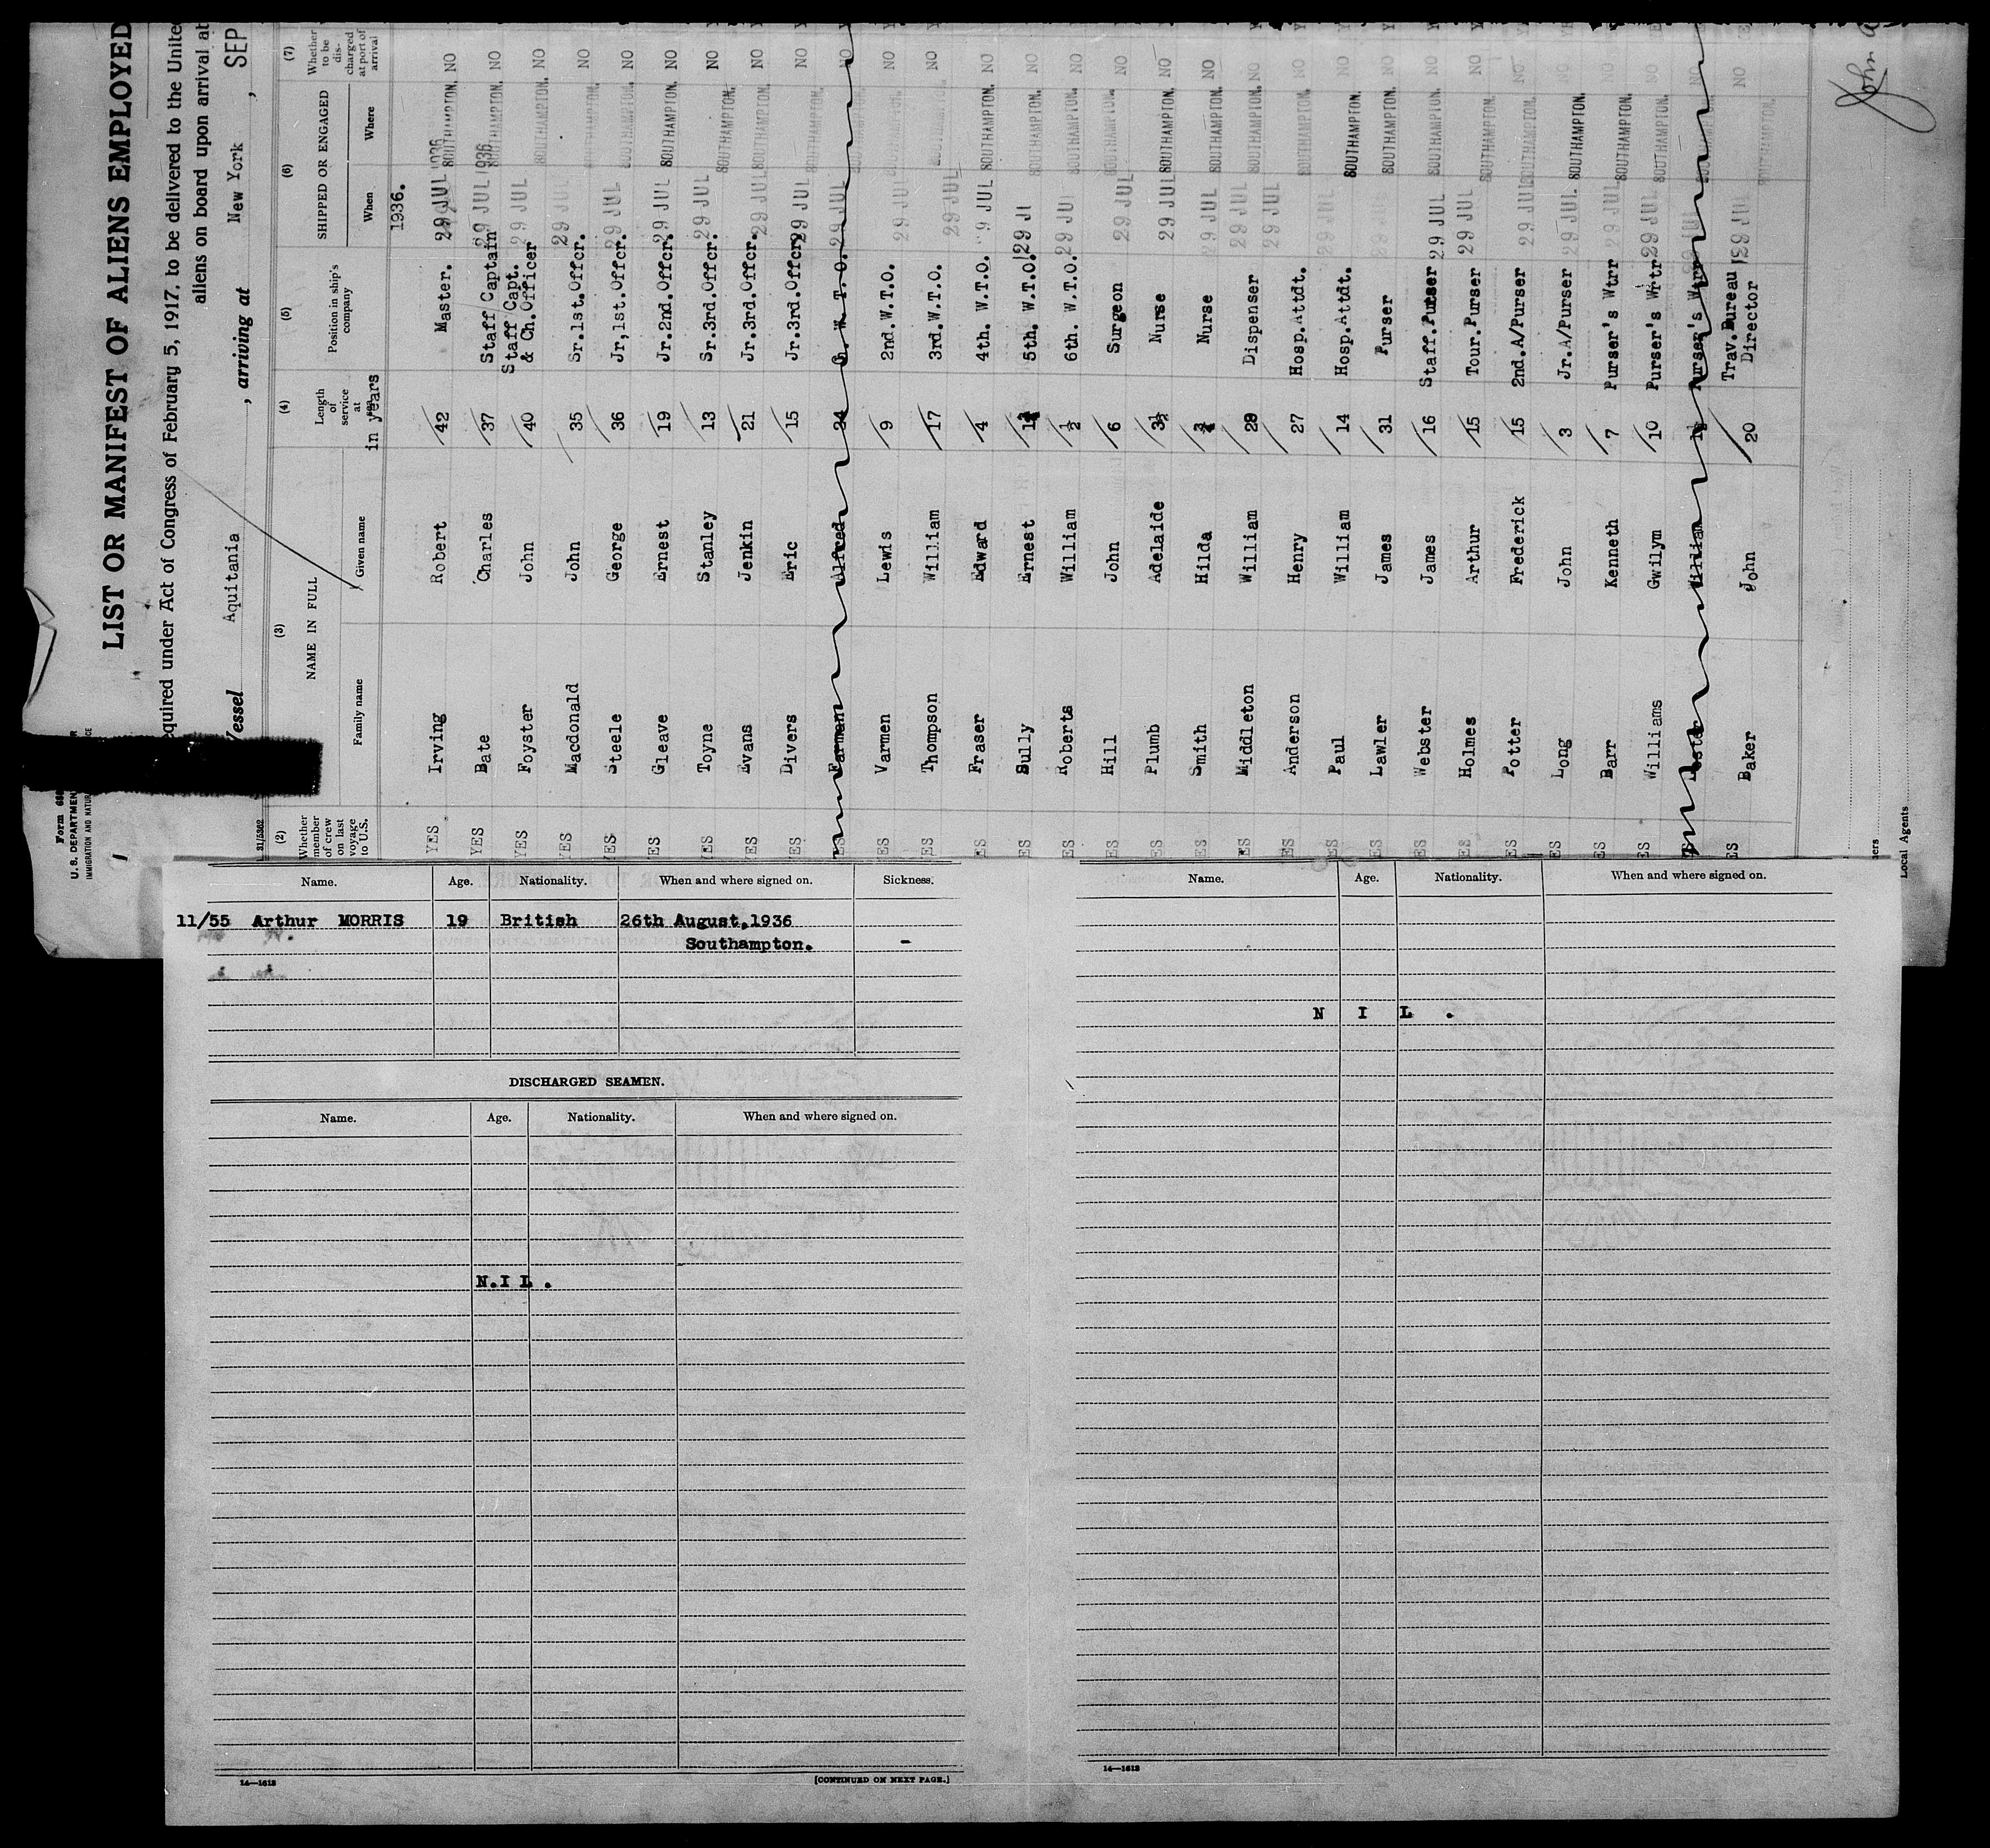 Form 680
U. S. DEPARTMENT
IMMIGRATION AND
LIST OR MANIFEST OF ALIENS EMPLOYED
equired under Act of Congress of February 5, 1917, to be delivered to the Unite
aliens on board upon arrival at
Vessel Aquitania , arriving at New York , SEP
31/5362
(2) (3) (4) (5) (6) (7)
Whether member of crew on last voyage to U.S. NAME IN FULL Length of service at sea Position in ship's company SHIPPED OR ENGAGED Whether to be discharged at port of arrival
Family name Given name in years When Where
1936.
YES Irving Robert 42 Master. 29 JUL 1936 SOUTHAMPTON. NO
YES Bate Charles 37 Staff Captain 29 JUL 1936 SOUTHAMPTON. NO
YES Foyster John 40 Staff Capt. & Ch. Officer 29 JUL SOUTHAMPTON. NO
YES Macdonald John 35 Sr.1st.Offcr. 29 JUL SOUTHAMPTON. NO
YES Steele George 36 Jr,1st.Offcr. 29 JUL SOUTHAMPTON. NO
YES Gleave Ernest 19 Jr.2nd.Offcr. 29 JUL SOUTHAMPTON. NO
YES Toyne Stanley 13 Sr.3rd.Offcr. 29 JUL SOUTHAMPTON. NO
YES Evans Jenkin 21 Jr.3rd.Offcr. 29 JUL SOUTHAMPTON. NO
YES Divers Eric 15 Jr.3rd.Offcr. 29 JUL SOUTHAMPTON. NO
ES Farmen Alfred 24 W.T.O. 29 JUL SOUTHAMPTON. NO
ES Varmen Lewis 9 2nd.W.T.O. 29 JUL SOUTHAMPTON. NO
ES Thompson William 17 3rd.W.T.O. 29 JUL SOUTHAMPTON. NO
ES Fraser Edward 4 4th. W.T.O. 9 JUL SOUTHAMPTON. NO
ES Sully Ernest 5th. W.T.O. 29 JU SOUTHAMPTON. NO
ES Roberts William ½ 6th. W.T.O. 29 JUL SOUTHAMPTON. NO
ES Hill John 6 Surgeon 29 JUL SOUTHAMPTON. NO
ES Plumb Adelaide 3½ Nurse 29 JUL SOUTHAMPTON. NO
ES Smith Hilda ¾ Nurse 29 JUL SOUTHAMPTON. NO
ES Middleton William 29 Dispenser 29 JUL SOUTHAMPTON. NO
ES Anderson Henry 27 Hosp.Attdt. 29 JUL SOUTHAMPTON. NO
ES Paul William 14 Hosp.Attdt. 29 JUL SOUTHAMPTON. NO
ES Lawler James 31 Purser 29 SOUTHAMPTON. NO
ES Webster James 16 Staff.Purser 29 JUL SOUTHAMPTON. NO
ES Holmes Arthur 15 Tour.Purser 29 JUL SOUTHAMPTON. NO
ES Potter Frederick 15 2nd.A/Purser 29 JUL SOUTHAMPTON. NO
ES Long John 3 Jr.A/Purser 29 JUL SOUTHAMPTON. NO
ES Barr Kenneth 7 Purser's Wtrr 29 JUL SOUTHAMPTON. NO
ES Williams Gwilym 10 Purser's Wrtr 29 JUL SOUTHAMPTON. NO
William Purser's Wtrr 29 JUL SOUTHAMPTON. NO
ES Baker John 20 Trav.Bureau Director 29 JUL SOUTHAMPTON. NO
John
Local Agents
Name. Age. Nationality. When and where signed on. Sickness.
11/55 Arthur MORRIS 19 British 26th August,1936
Southampton. -
DISCHARGED SEAMEN.
Name. Age. Nationality. When and where signed on.
N.I L .
14—1613 [CONTINUED ON NEXT PAGE.]
Name. Age. Nationality. When and where signed on.
N I L .
14—1613